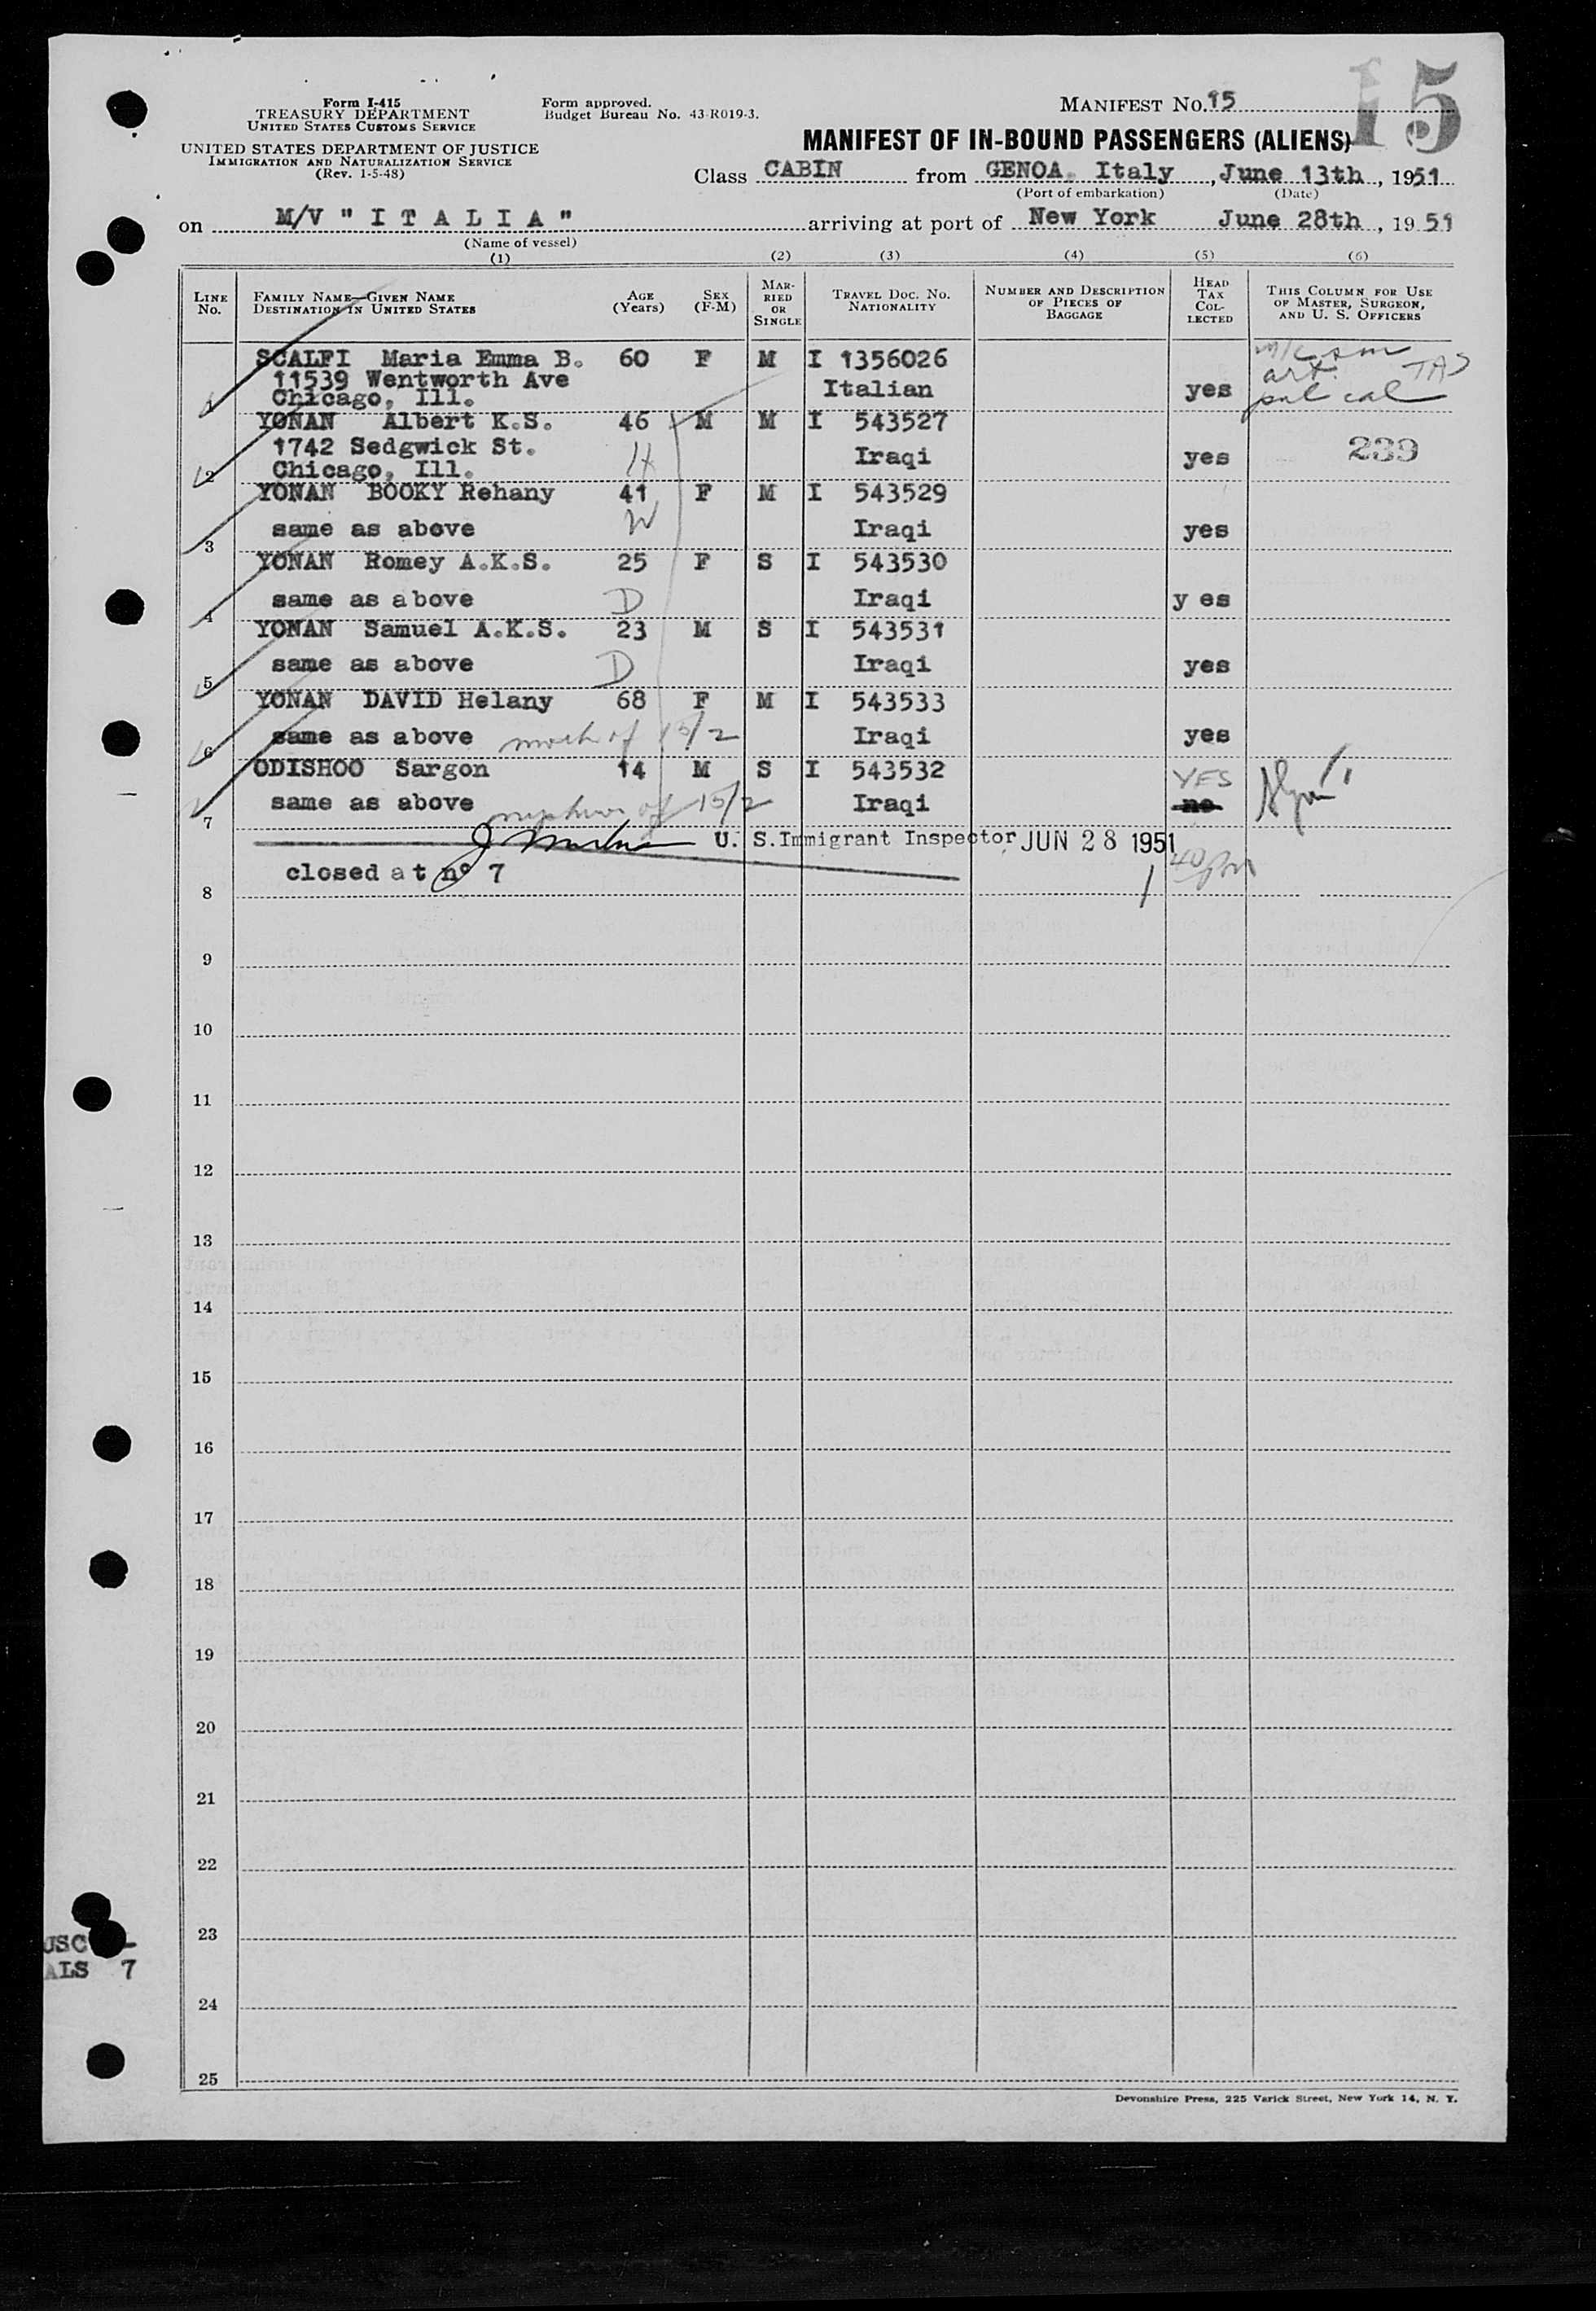 15
Form I-415
TREASURY DEPARTMENT
UNITED STATES CUSTOMS SERVICE
UNITED STATES DEPARTMENT OF JUSTICE
IMMIGRATION AND NATURALIZATION SERVICE
(Rev. 1-5-48)
Form approved.
Budget Bureau No. 43-R019-3.
MANIFEST No. 15
MANIFEST OF IN-BOUND PASSENGERS (ALIENS)
Class CABIN from GENOA. Italy, June 13th, 1951
(Port of embarkation) (Date)
on M/V " I T A L I A " arriving at port of New York June 28th, 1951
(Name of vessel)
(1) (2) (3) (4) (5) (6)
LINE No. FAMILY NAME—GIVEN NAME DESTINATION IN UNITED STATES AGE (Years) SEX (F-M) MARRIED OR SINGLE TRAVEL DOC. No. NATIONALITY NUMBER AND DESCRIPTION OF PIECES OF BAGGAGE HEAD TAX COLLECTED THIS COLUMN FOR USE OF MASTER, SURGEON, AND U. S. OFFICERS
SCALFI Maria Emma B. 60 F M I 1356026
11539 Wentworth Ave Italian yes art.
1 Chicago, Ill.
YONAN Albert K.S. 46 M M I 543527
1742 Sedgwick St. H Iraqi yes 239
2 Chicago, Ill.
YONAN BOOKY Rehany 41 F M I 543529
W
3 same as above Iraqi yes
YONAN Romey A.K.S. 25 F S I 543530
4 same as above D Iraqi y es
YONAN Samuel A.K.S. 23 M S I 543531
5 same as above D Iraqi yes
YONAN DAVID Helany 68 F M I 543533
6 same as above moth of 15/2 Iraqi yes
ODISHOO Sargon 14 M S I 543532 YES
7 same as above nephew of 15/2 Iraqi no
U. S. Immigrant Inspector JUN 28 1951
8 closed at n° 7
9
10
11
12
13
14
15
16
17
18
19
20
21
22
23
24
25
USC -
ALS 7
Devonshire Press, 225 Varick Street, New York 14, N. Y.